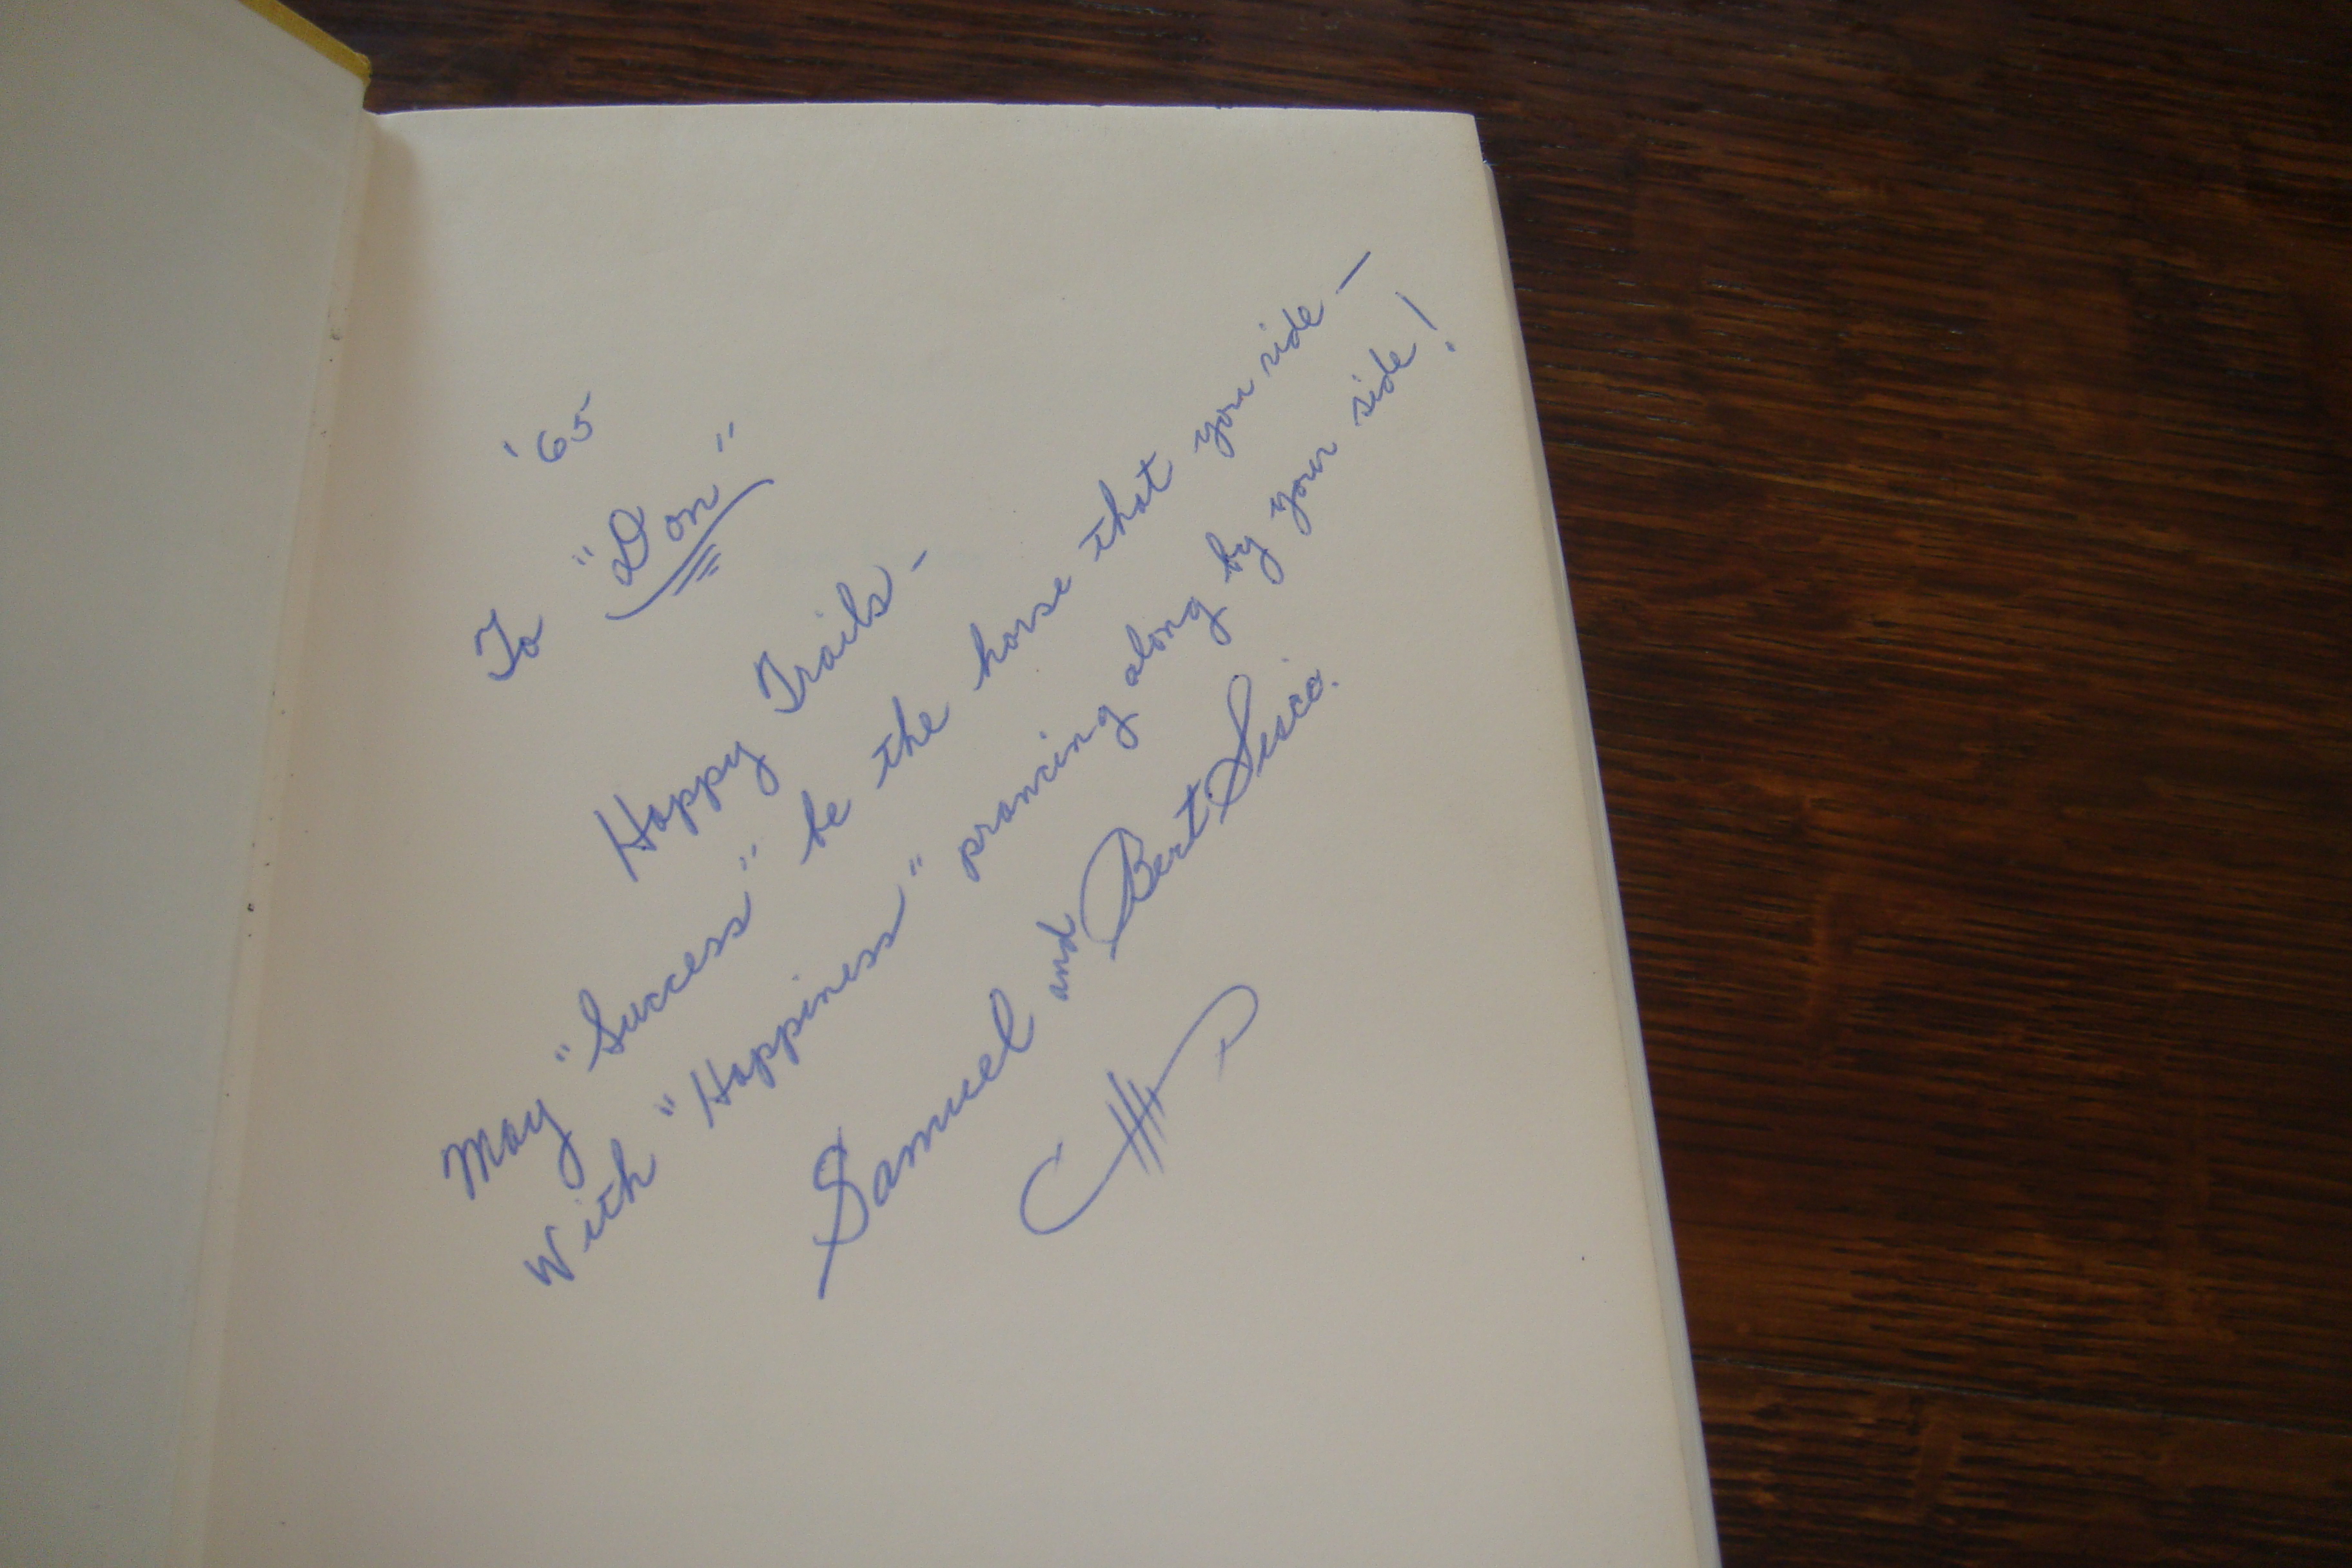 '65
To "Don"
Happy Trails -
May "Success" be the horse that you ride -
With "Happiness" prancing along by your side!
Samuel and Bert Sisco.